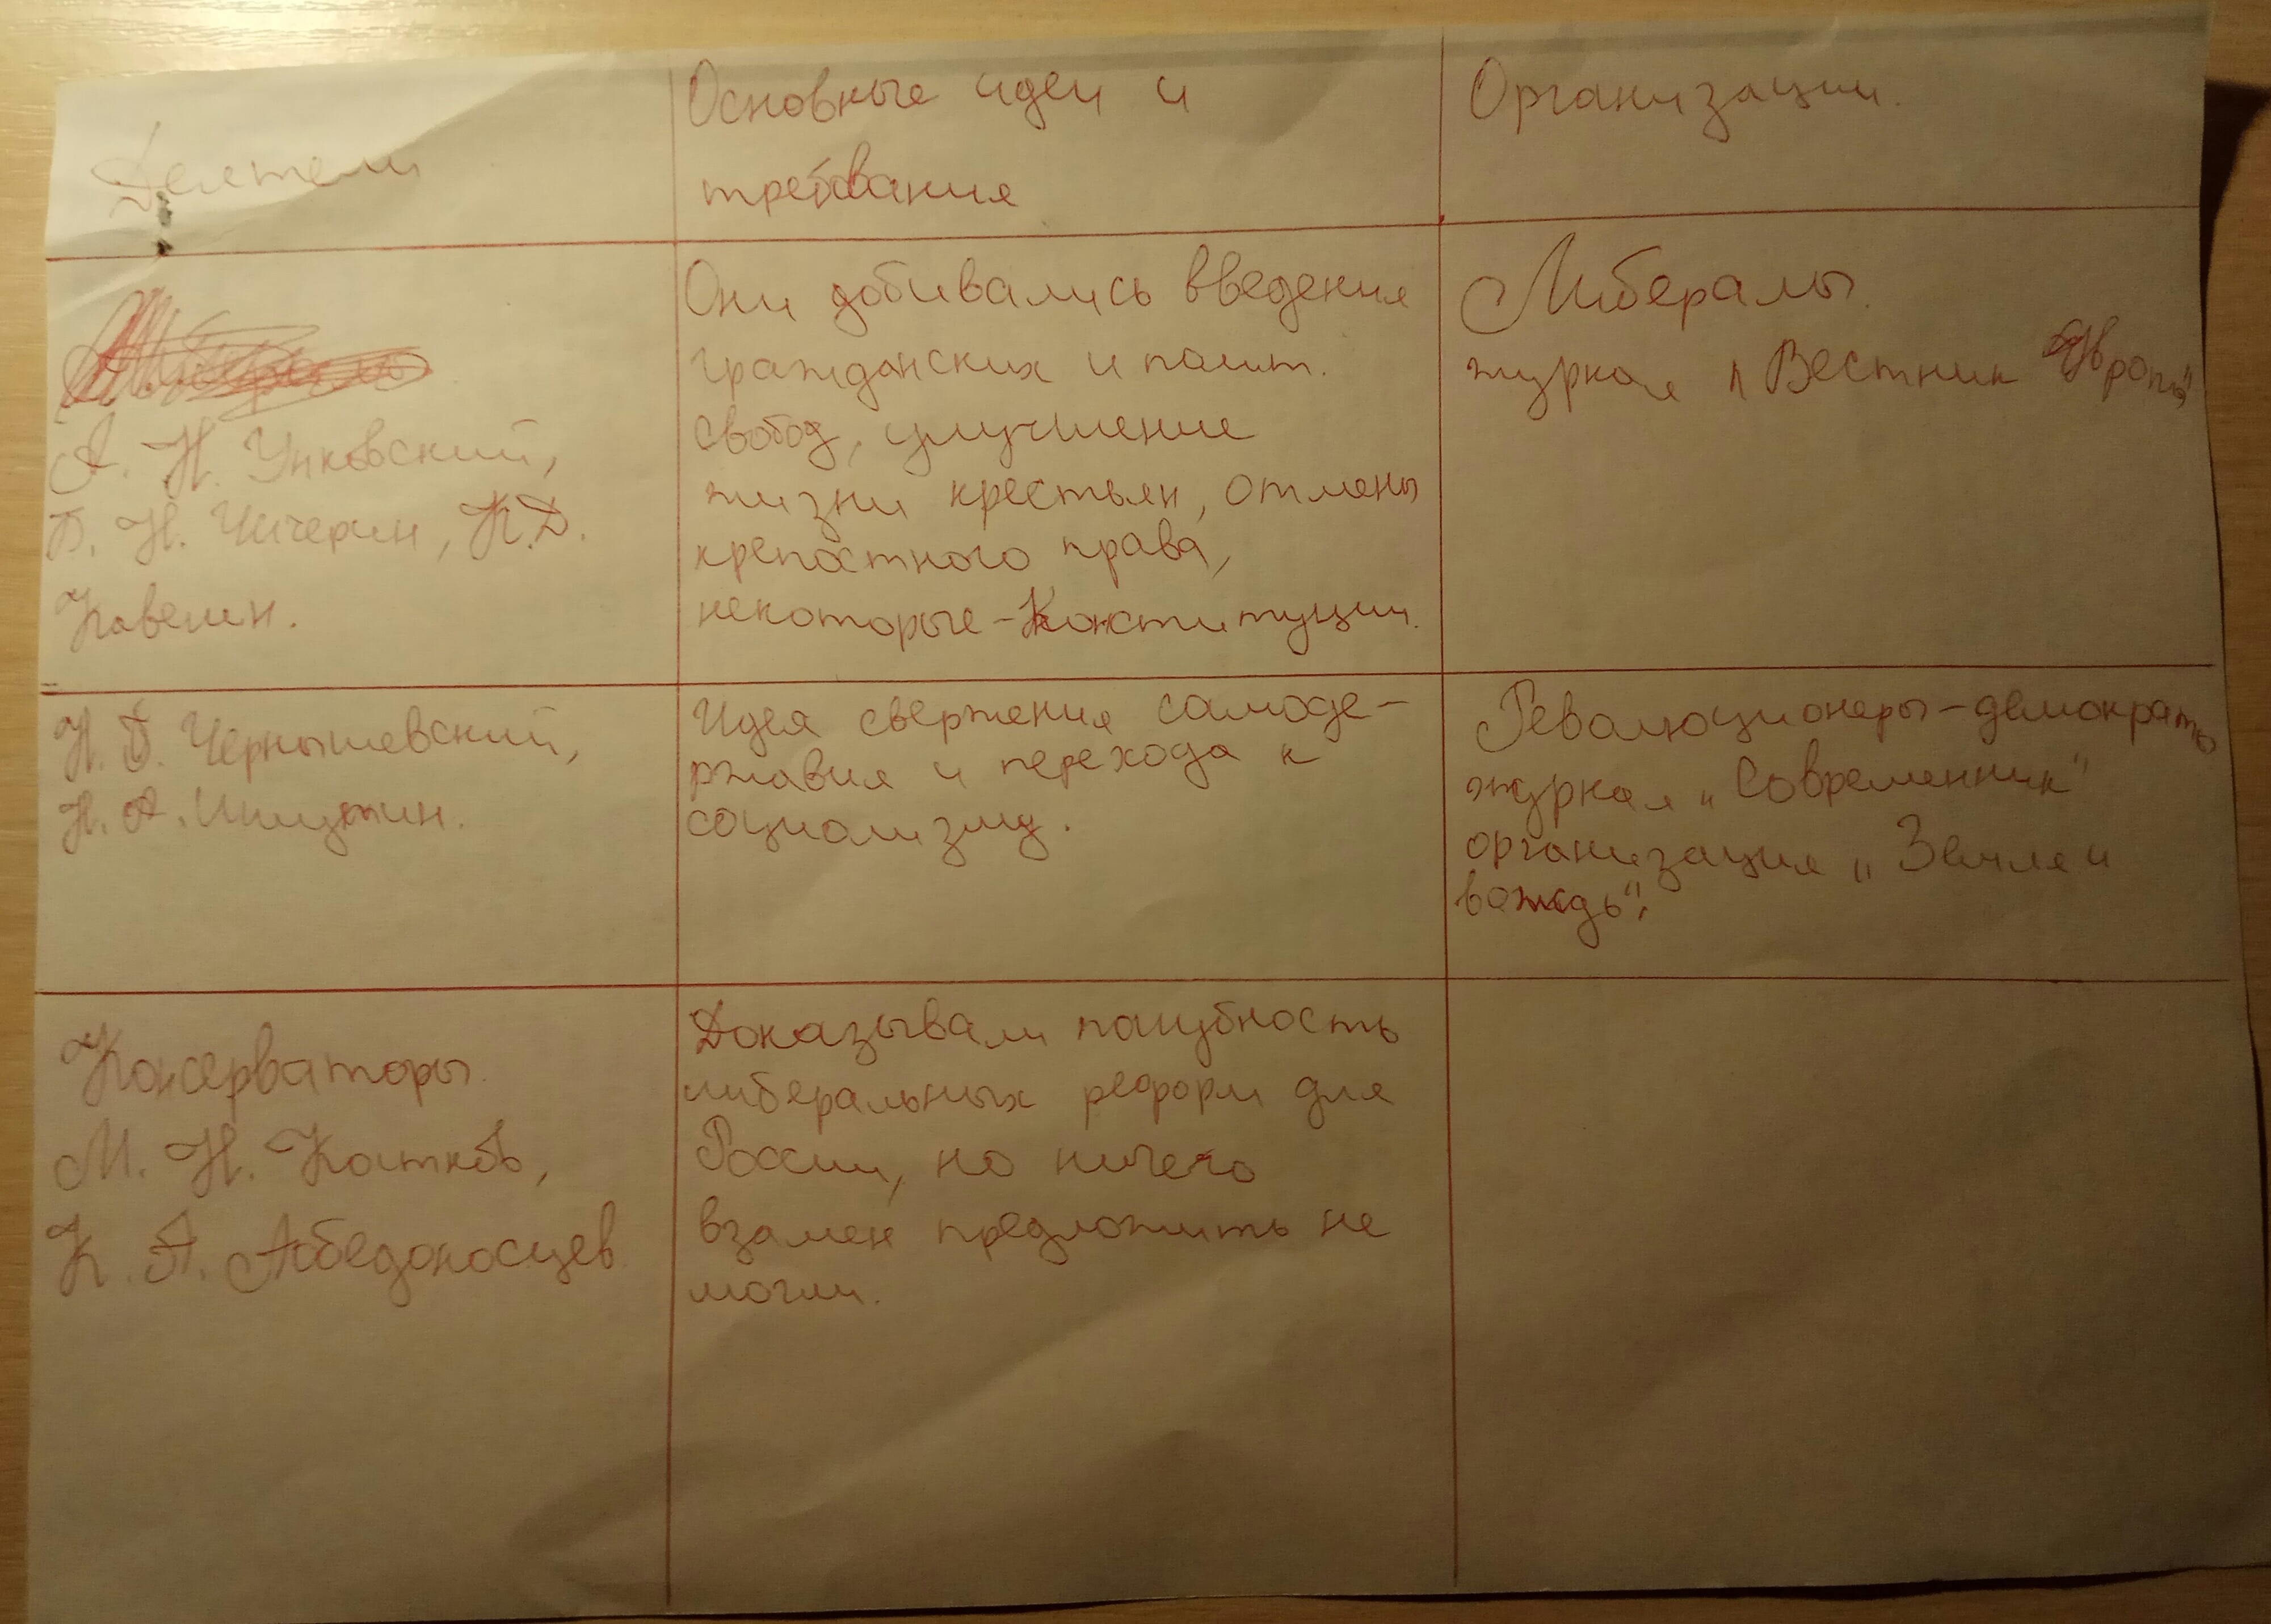 Деятели
Основные идеи и
требования
Организации.
А. Н. Унковский,
Б. Н. Чичерин, К.Д.
Кавелин.
Они добивались введения
гражданских и полит.
свобод, улучшение
жизни крестьян, отмены
крепостного права,
некоторые-Конституции.
Либералы.
журнал "Вестник Европы"
Н. Г. Чернышевский,
Н. А. Ишутин.
Идея свержения самоде-
ржавия и перехода к
социализму.
Революционеры-демократы
журнал "Современник"
организация "Земля и
Консерваторы.
М. Н. Катков,
К. П. Победоносцев
Доказывали пагубность
либеральных реформ для
России, но ничего
взамен предложить не
могли.